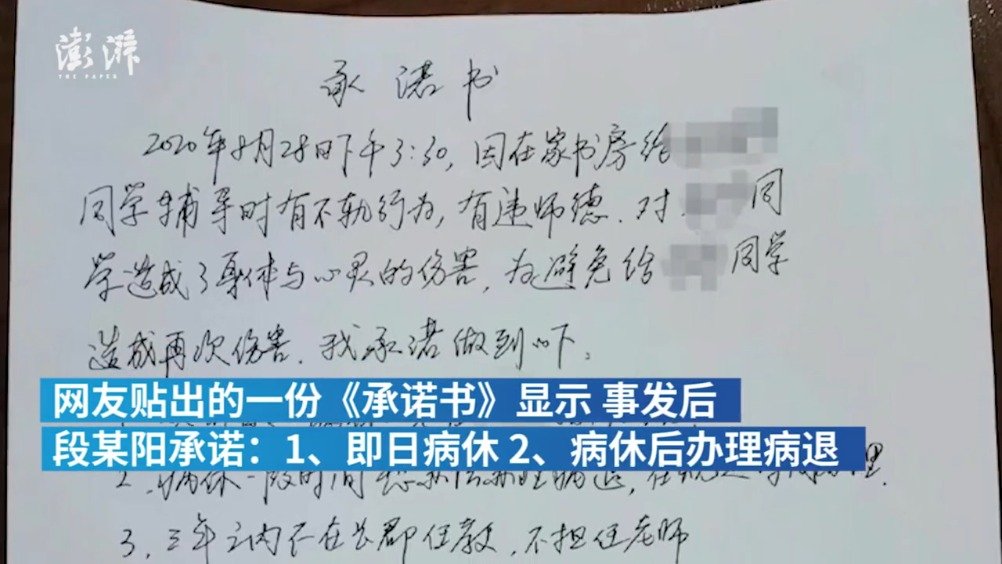 澎湃
THE PAPER
承诺书
2020年8月28日下午3:30，因在家书房给
同学辅导时有不轨行为，有违师德．对 同
学造成了身体与心灵的伤害，为避免给 同学
造成再次伤害．我承诺做到以下：
网友贴出的一份《承诺书》显示 事发后
段某阳承诺：1、即日病休 2、病休后办理病退
2、病休一段时间 办理病退，
3、三年之内不在长郡任教，不担任老师